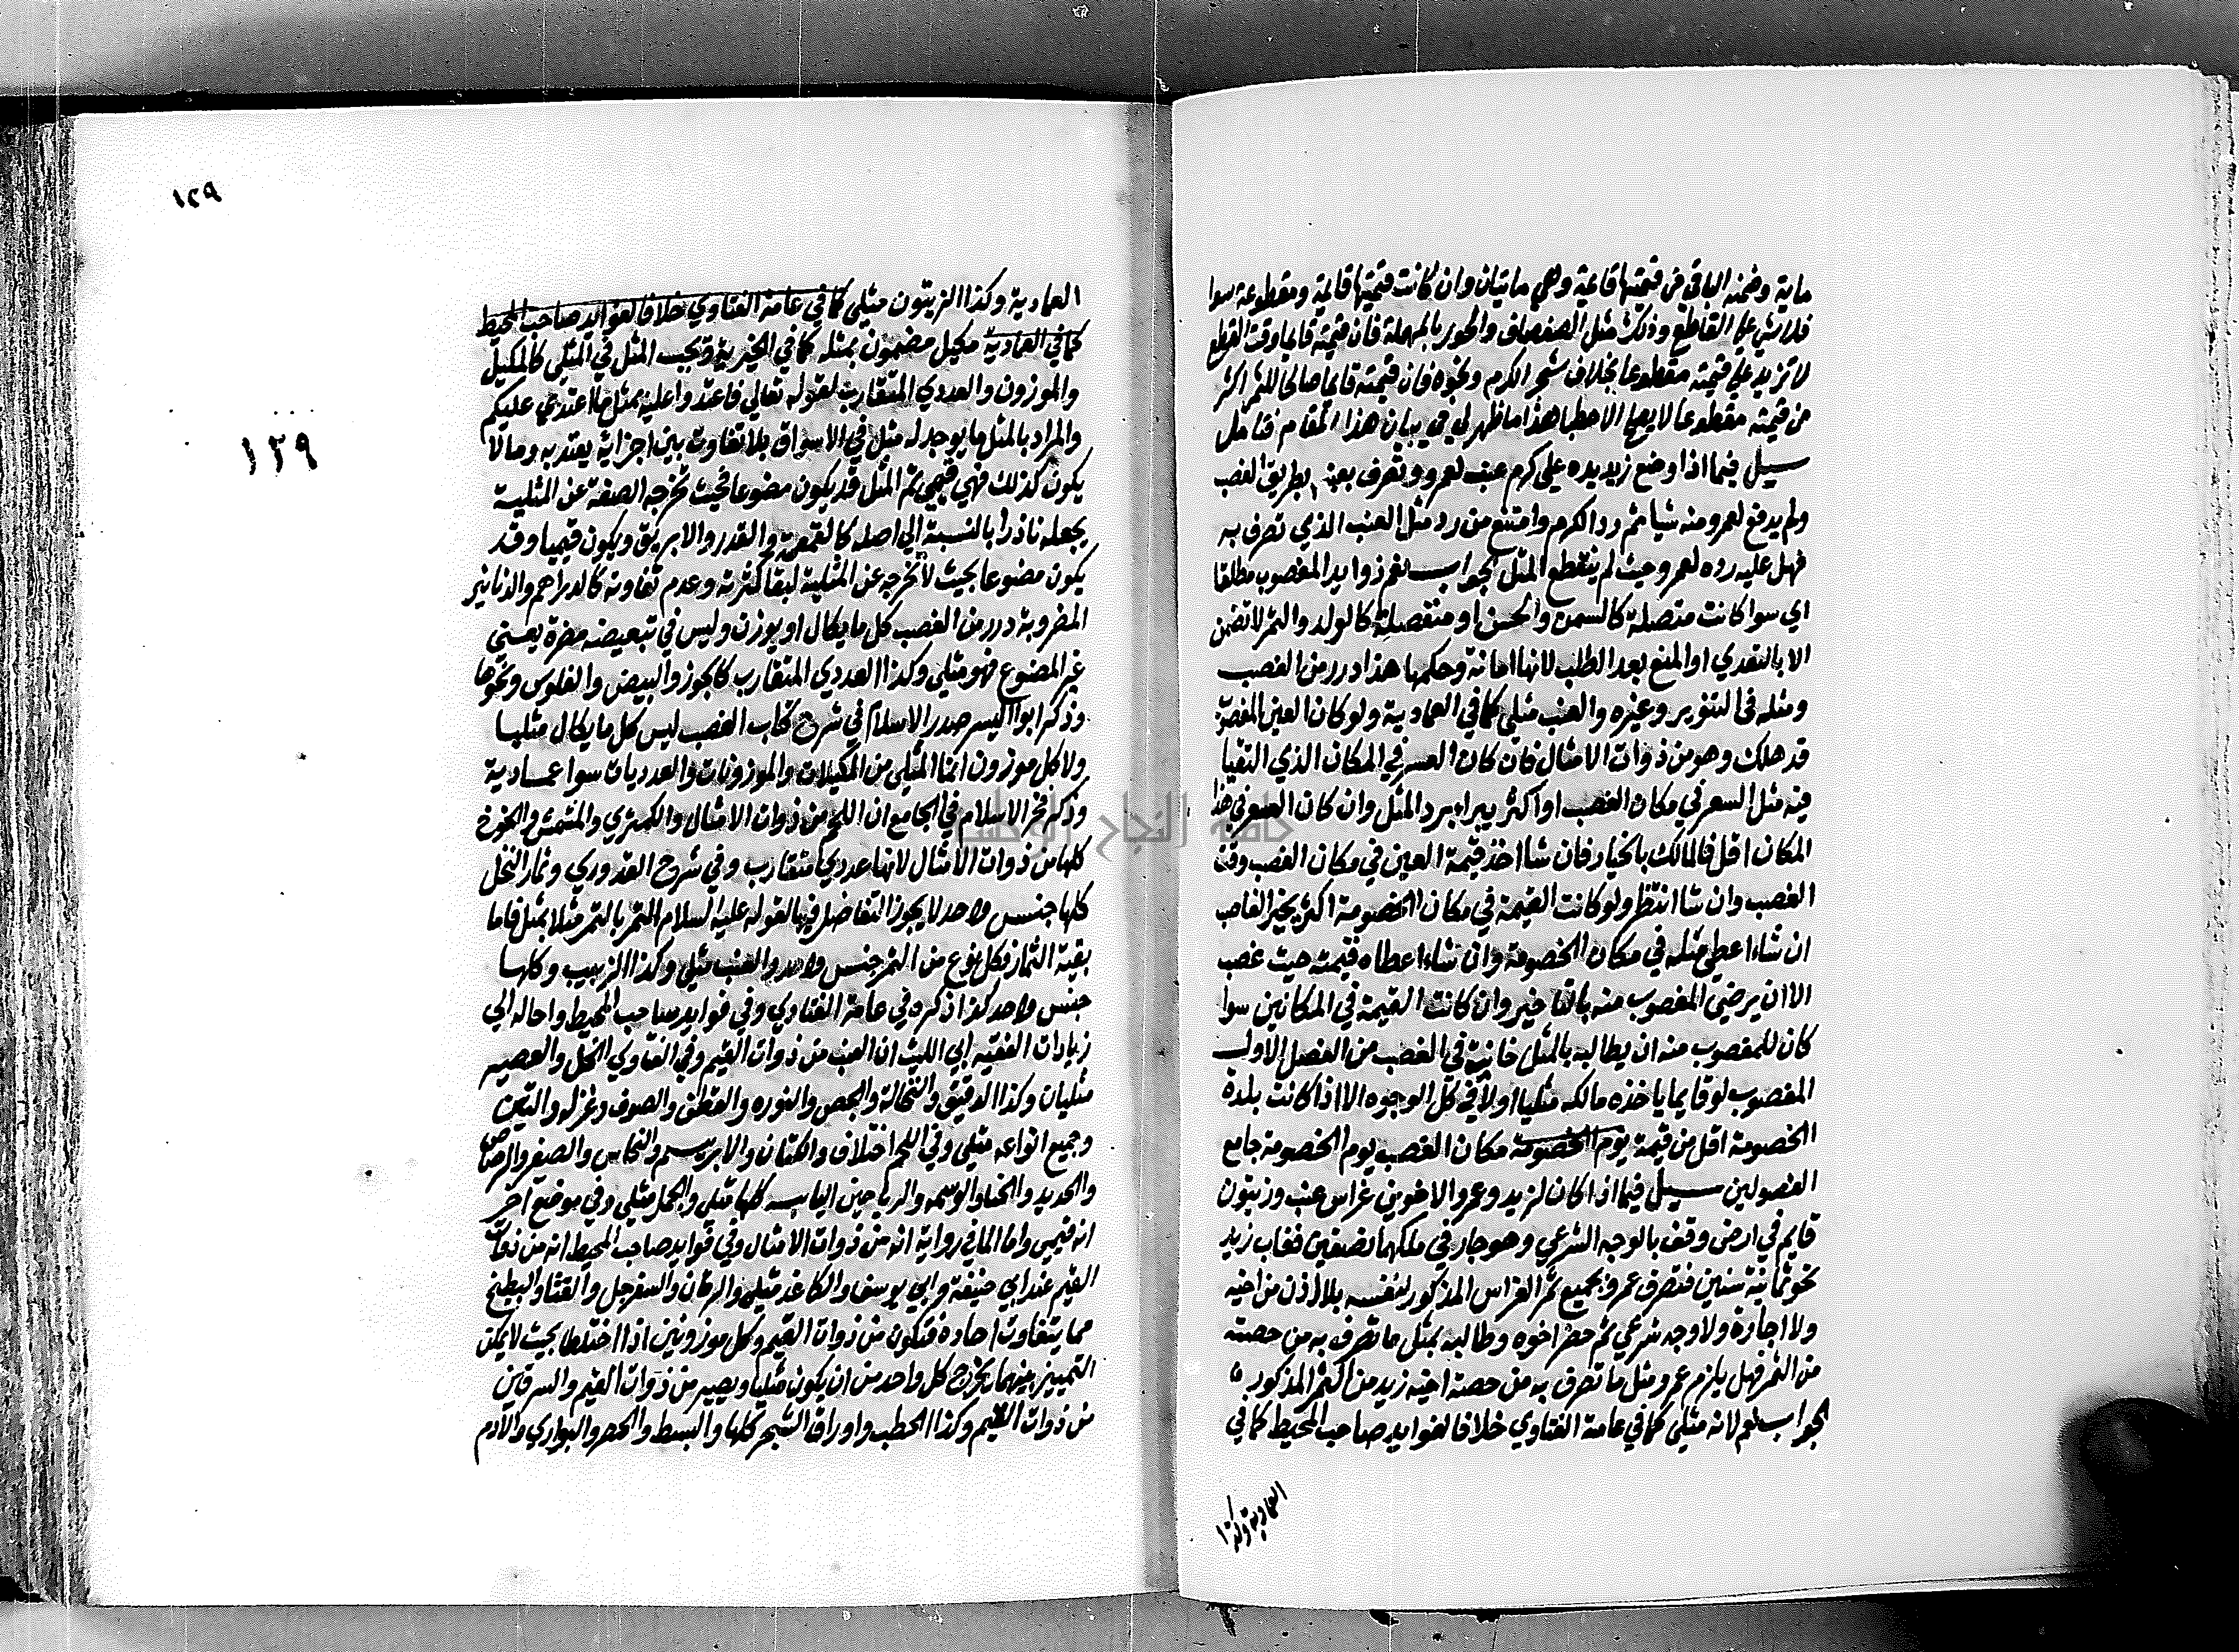 ماية وضمنه الباقي من قيمتها قايمة وهي مايتان وان كانت قيمتها قايمة ومقطوعة سوا
فلا شي على القاطع وذلك مثل الصفصاف والحور بالمهملة فان قيمته قايما وقت القطع
لا تزيد على قيمته مقطوعا بخلاف شجر الكرم ونحوه فان قيمته قايما صالحا للثمر اكثر
من قيمته مقطوعا لا يصلح الا حطبا هذا ما ظهر لي في بيان هذا المقام فتامل
سيل فيما اذا وضع زيد يده على كرم عنب لعمرو وتصرف بعنبه بطريق الغصب
ولم يدفع لعمرو منه شيا ثم رد الكرم وامتنع من رد مثل العنب الذي تصرف به
فهل عليه رده لعمرو حيث لم ينقطع المثل الجواب نعم زوايد المغصوب مطلقا
اي سوا كانت متصلة كالسمن والحسن او منفصلة كالولد والثمر لا تضمن
الا بالتعدي او المنع بعد الطلب لانها امانة وحكمها هذا درر من الغصب
ومثله في التنوير وغيره والعنب مثلي كما في العمادية ولو كان العين المغصوبة
قد هلك وهو من ذوات الامثال فان كان السعر في المكان الذي التقيا
فيه مثل السعر في مكان الغصب او اكثر يبرا برد المثل وان كان السعر في هذا
المكان اقل فالمالك بالخيار فان شا اخذ قيمة العين في مكان الغصب وقت
الغصب وان شا انتظر ولو كانت القيمة في مكان الخصومة اكثر يخير الغاصب
ان شاء اعطى مثله في مكان الخصومة وان شاء اعطاه قيمته حيث غصب
الا ان يرضى المغصوب منه بالتاخير وان كانت القيمة في المكانين سوا
كان للمغصوب منه ان يطالبه بالمثل خانية في الغصب من الفصل الاول
المغصوب لو قايما ياخذه مالكه مثليا اولا في كل الوجوه الا اذا كانت بلدة
الخصومة اقل من قيمته يوم الخصومة مكان الغصب يوم الخصومة جامع
الفصولين سيل فيما اذا كان لزيد وعمرو الاخوين غراس عنب وزيتون
قايم في ارض وقف بالوجه الشرعي وهو جار في ملكهما نصفين فغاب زيد
نحو ثمانية سنين فتصرف عمرو بجميع ثمر الغراس المذكور لنفسه بلا اذن من اخيه
ولا اجازة ولا وجه شرعي ثم حضر اخوه وطالبه بمثل ما تصرف به من حصته
من الثمر فهل يلزم عمرو مثل ما تصرف به من حصة اخيه زيد من الثمر المذكور
الجواب نعم لانه مثلي كما في عامة الفتاوي خلافا لفوايد صاحب المحيط كما في
العمادية وكذا
١٢٩
١٢٩
العمادية وكذا الزيتون مثلي كما في عامة الفتاوي خلافا لفوايد صاحب المحيط
كما في العمادية مكيل مضمون بمثله كما في الخيرية ويجب المثل في المثلي كالمكيل
والموزون والعددي المتقارب لقوله تعالى فاعتدوا عليه بمثل ما اعتدى عليكم
والمراد بالمثل ما يوجد له مثل في الاسواق بلا تفاوت بين اجزائه يعتد به وما لا
يكون كذلك فهي قيمي ثم المثل قد يكون مصنوعا بحيث تخرجه الصنعة عن المثلية
بجعله نادرا بالنسبة الى اصله كالقمقمة والقدر والابريق ويكون قيميا وقد
يكون مصنوعا بحيث لا تخرجه عن المثلية لبقا كثرته وعدم تفاوته كالدراهم والدنانير
المضروبة درر من الغصب كل ما يكال او يوزن وليس في تبعيضه مضرة يعني
غير المصنوع فهو مثلي وكذا العددي المتقارب كالجوز والبيض والفلوس ونحوها
وذكر ابو اليسر صدر الاسلام في شرح كتاب الغصب ليس كل ما يكال مثليا
ولا كل موزون انما المثلي من المكيلات والموزونات والعدديات سوا عمادية
وذكر فخر الاسلام في الجامع ان اللحم من ذوات الامثال والكمثري والمشمش والخوخ
كلها من ذوات الامثال لانها عددي متقارب وفي شرح القدوري وثمار النخل
كلها جنس واحد لا يجوز التفاضل فيها لقوله عليه السلام التمر بالتمر مثلا بمثل فاما
بقية الثمار فكل نوع من الثمر جنس واحد والعنب مثلي وكذا الزبيب وكلها
جنس واحد كذا ذكره في عامة الفتاوي وفي فوايد صاحب المحيط واحاله الى
زيادات الفقيه ابي الليث ان العنب من ذوات القيم وفي الفتاوي الخل والعصير
مثليان وكذا الدقيق والنخالة والجص والنوره والقطن والصوف وغزله والتبن
وجميع انواعه مثلي وفي اللحم اختلاف والكتان والابريسم والنحاس والصفر والرصاص
والحديد والحنا والوسمه والرياحين اليابسة كلها مثلي والجمد مثلي وفي موضع اخر
انه قيمي واما الما في رواية انه من ذوات الامثال وفي فوايد صاحب المحيط انه من ذوات
القيم عند ابي حنيفة وابي يوسف والكاغد مثلي والرمان والسفرجل والقثا والبطيخ
مما يتفاوت احاده فتكون من ذوات القيم وكل موزونين اذا اختلطا بحيث لا يمكن
التمييز بينهما يخرج كل واحد من ان يكون مثليا ويصير من ذوات القيم والسرقين
من ذوات القيم وكذا الحطب واوراق الشجر كلها والبسط والحصر والبواري والادم